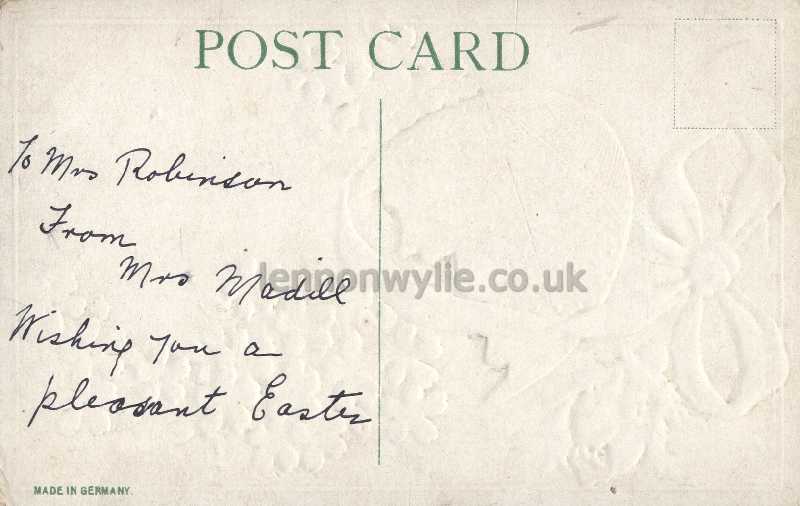 POST CARD
To Mrs Robinson
From
Mrs Madill
lennonwylie.co.uk
Wishing you a
pleasant Easter
MADE IN GERMANY.